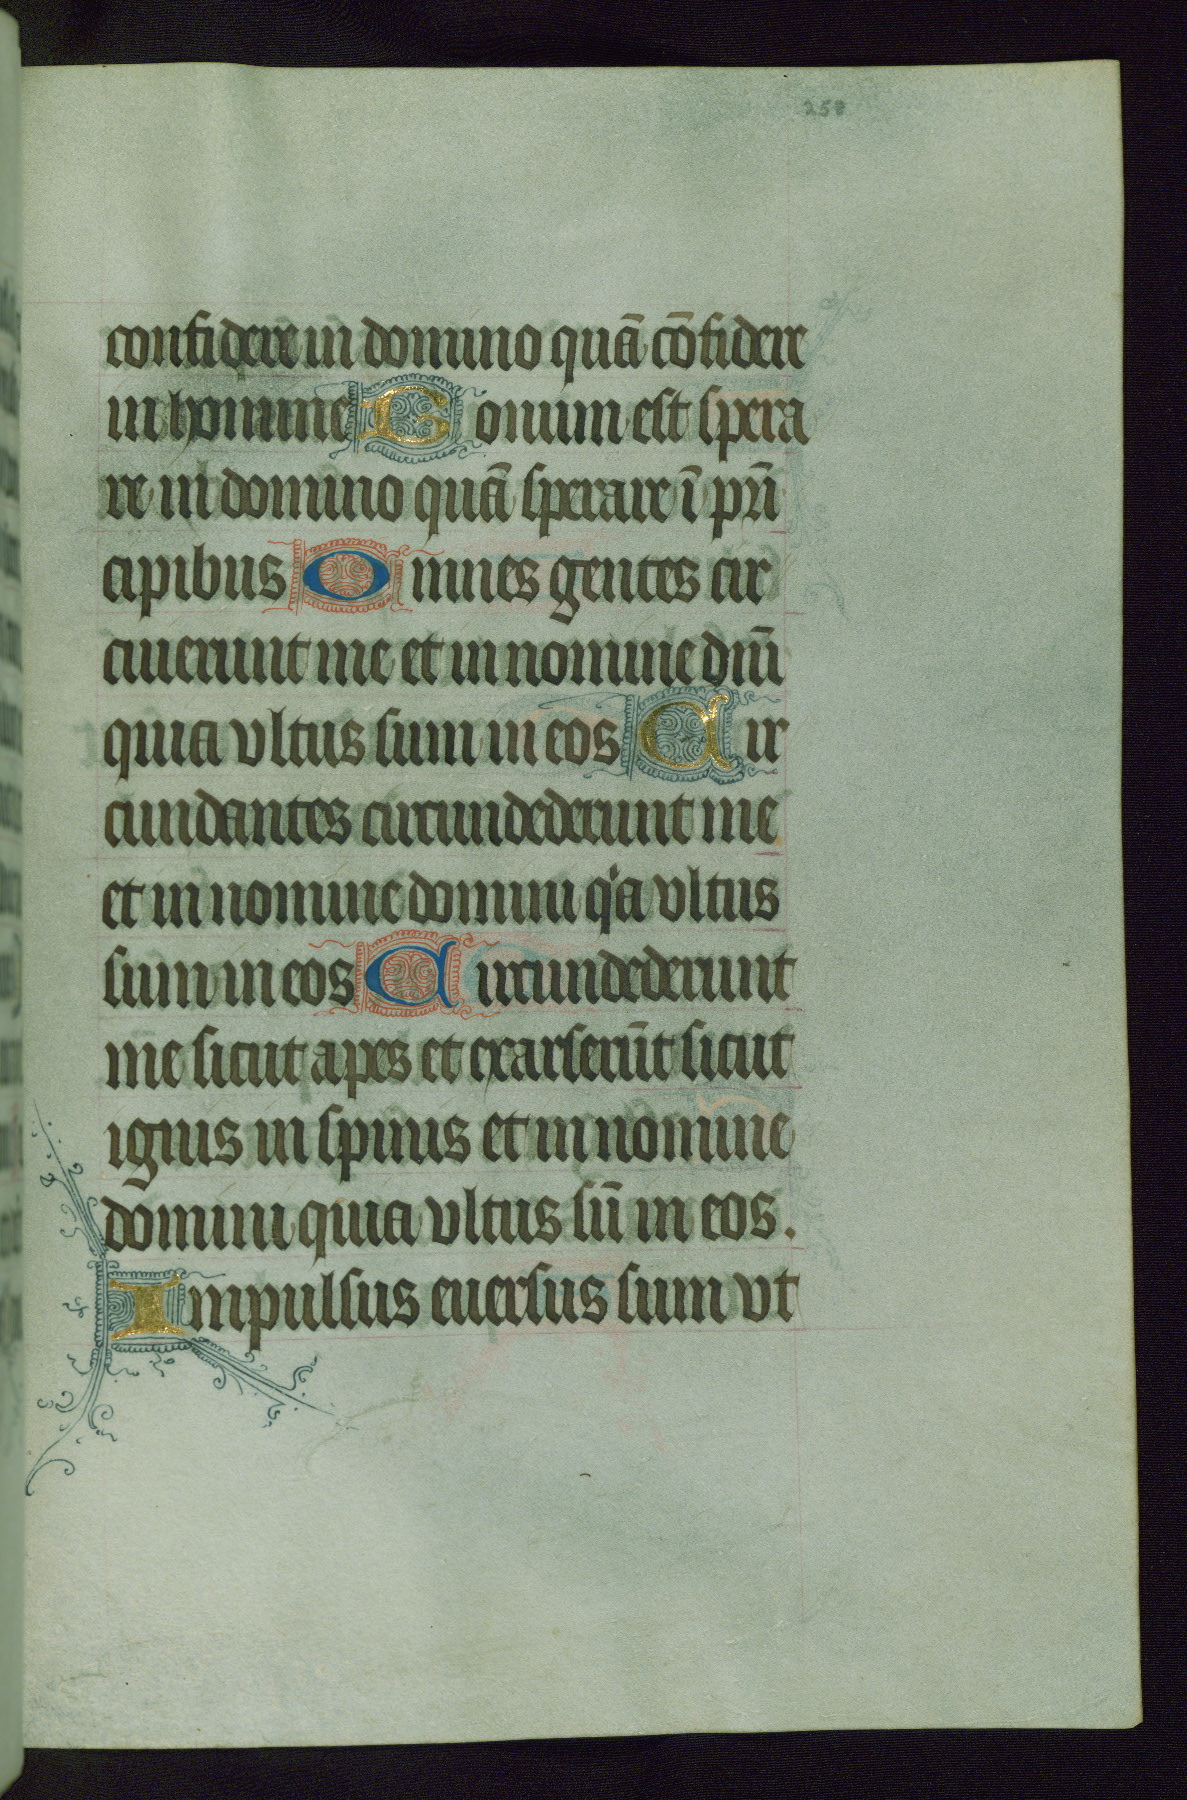 258
confidere in domino quā cōfidere
in homine Bonum est spera
re in domino quā sperare ī prī
cipibus Omnes gentes cir
cuierunt me et in nomine dnī
quia vltus sum in eos Cir
cundantes circundederunt me
et in nomine domini qia vltus
sum in eos Circundederunt
me sicut apes et exarserūt sicut
ignis in spinis et in nomine
domini quia vltus sū in eos.
Impulsus euersus sum vt